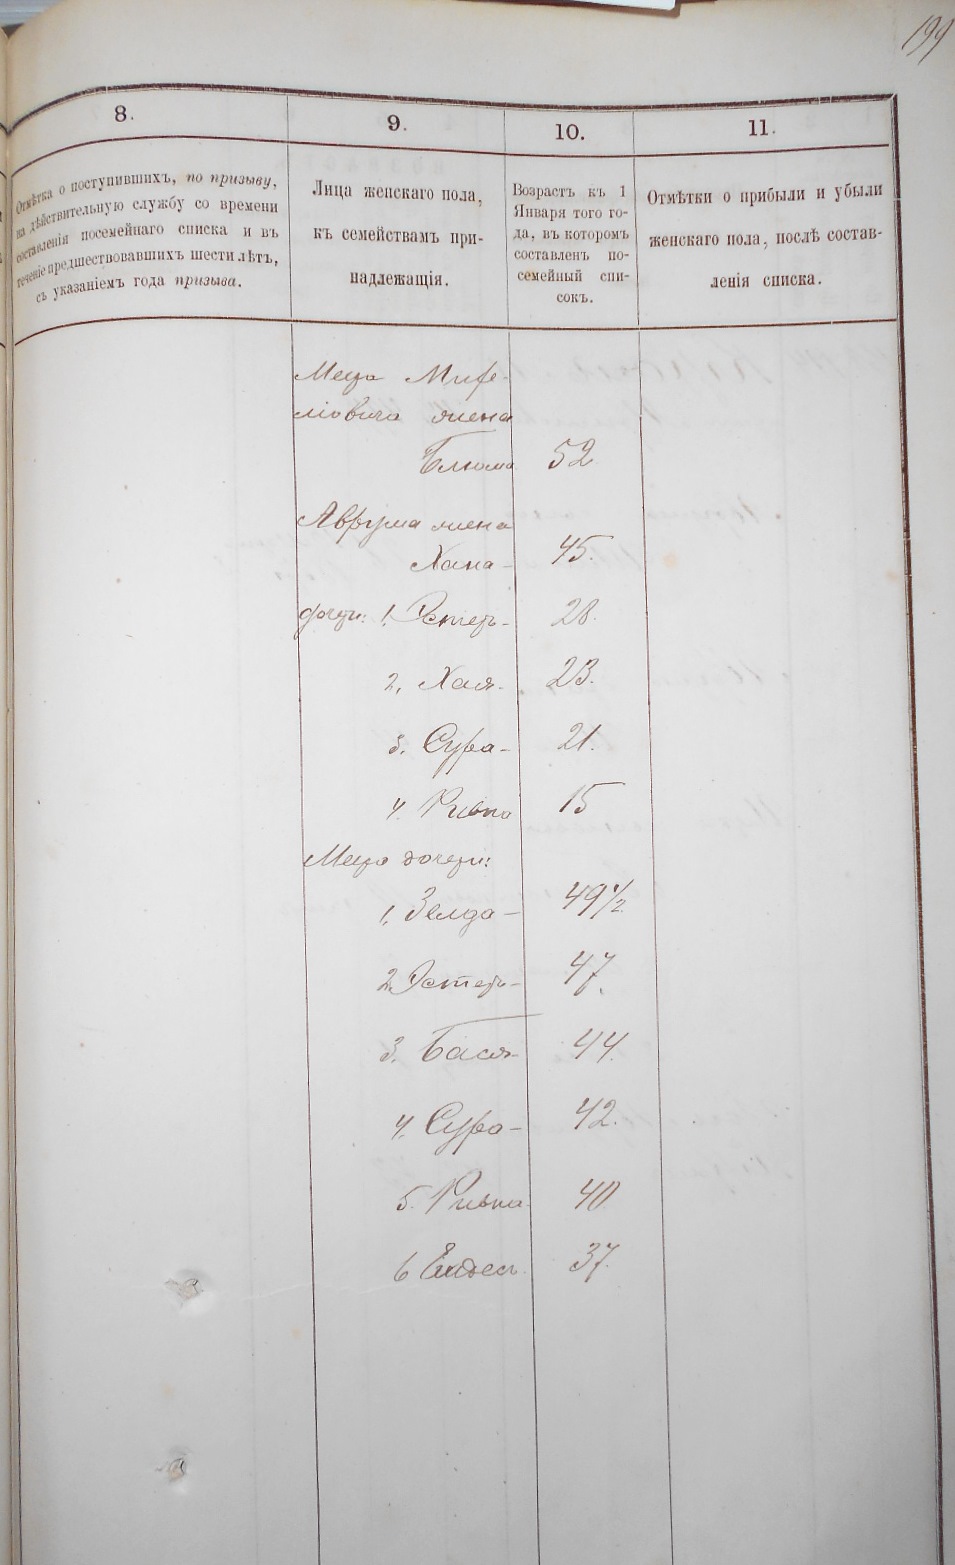 199
8.
9.
10.
11.
Отмѣтка о поступившихъ, по призыву,
на дѣйствительную службу со времени
составленія посемейнаго списка и въ
теченіе предшествовавшихъ шести лѣтъ,
съ указаніемъ года призыва.
Лица женскаго пола,
къ семействамъ при-
надлежащія.
Возрастъ къ 1
Января того го-
да, въ которомъ
составленъ по-
семейный спи-
сокъ.
Отмѣтки о прибыли и убыли
женскаго пола, послѣ состав-
ленія списка.
жена
Блюма 52
Аврума жена
Хана - 45.
дочери: 1. Эстеръ - 28.
2. Хая - 23.
3. Сура - 21.
4. Ривка 15
дочери:
1. Зелда - 49 1/2
2. Эстеръ - 47.
3. Бася - 44.
4. Сура - 42.
5. Ривка 40
6 37.